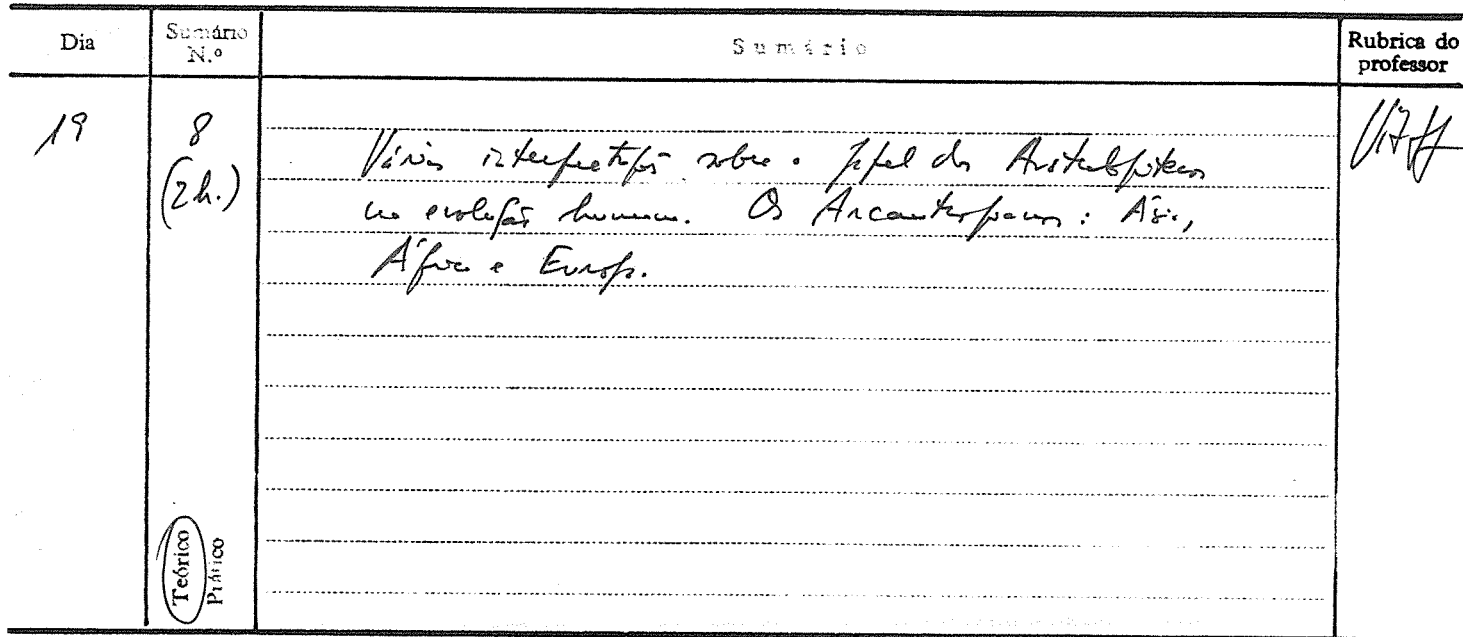 Dia
Sumário N.º
Sumário
Rubrica do professor
19
8
(2h.)
Várias interpretações sobre o papel dos Australopitecos
na evolução humana. Os Arcantropianos: Ásia,
África e Europa.
Teórico
Prático